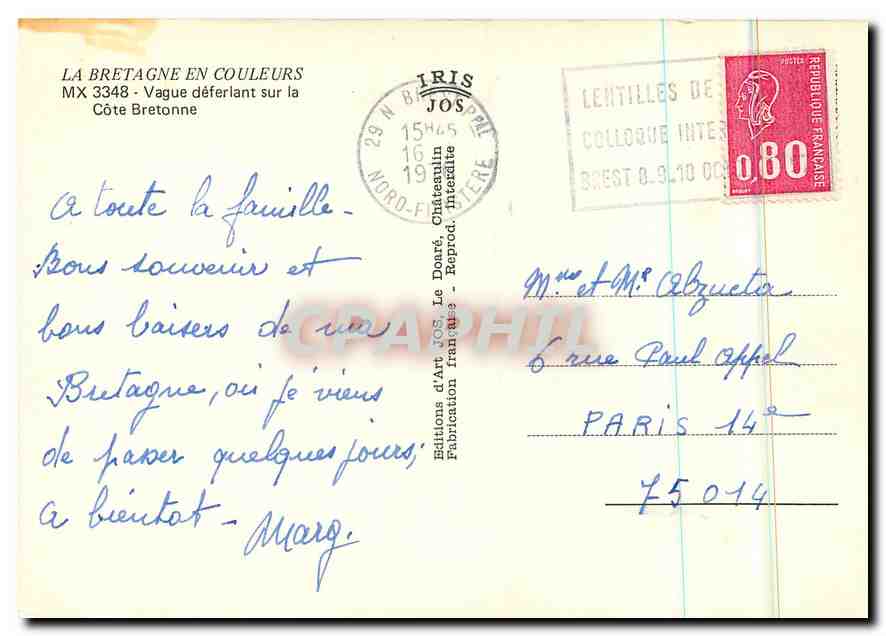 LA BRETAGNE EN COULEURS
MX 3348 - Vague déferlant sur la
Côte Bretonne
IRIS
JOS
Editions d'Art JOS, Le Doaré, Châteaulin
Fabrication française - Reprod. interdite
29 N
15H45
16
19
NORD-FINISTERE
LENTILLES DE
COLLOQUE INTER
BREST 8.9.10 OC
POSTES
REPUBLIQUE FRANÇAISE
0,80
A toute la famille -
Bons souvenir et
bons baisers de ma
Bretagne, où je viens
de passer quelques jours,
A bientôt -
Marg.
et Mr Abzueta
6 rue Paul Appel
PARIS 14e
75014
CPARPHIL